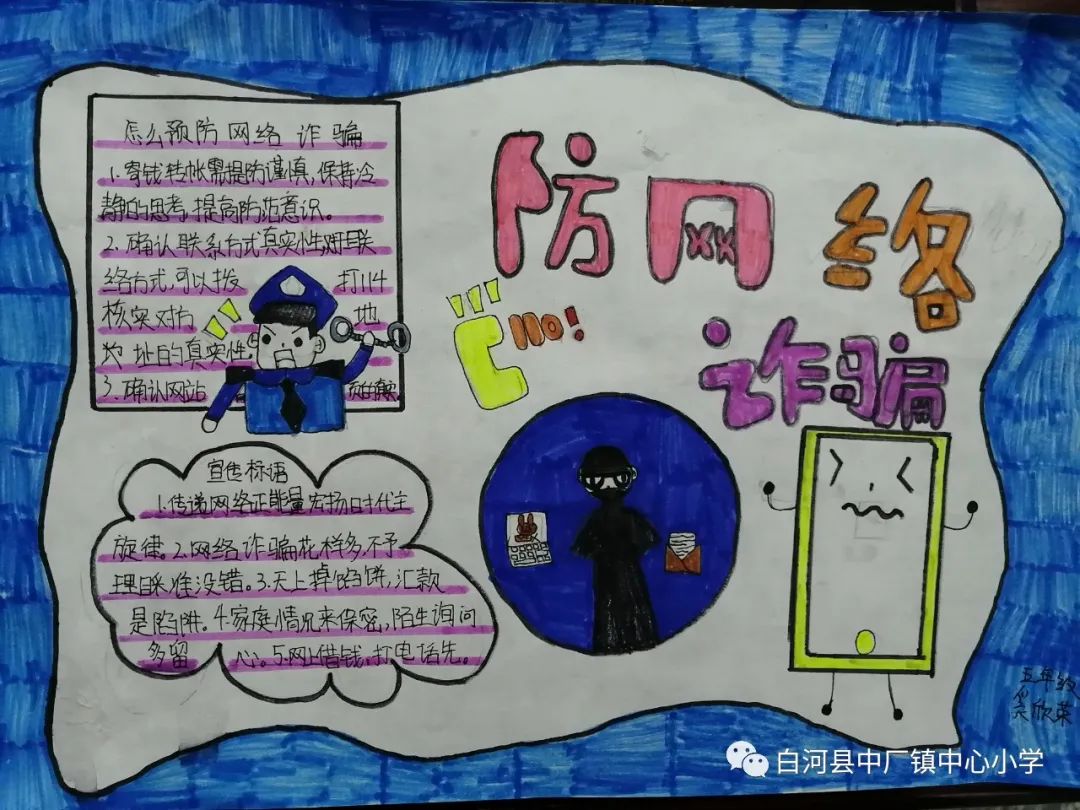 怎么预防网络诈骗
1.寄钱转帐需提防谨慎,保持冷
静的思考,提高防范意识。
2.确认联系方式真实性,对联
络方式,可以拨 打114
核实对方 地
址的真实性。
3.确认网站
防网络
诈骗
110!
宣传标语
1.传递网络正能量宏扬时代主
旋律。2.网络诈骗花样多,不予
理睬准没错。3.天上掉馅饼,汇款
是陷阱。4.家庭情况来保密,陌生询问
多留 心。5.网上借钱,打电话先。
五年级
欣荣
白河县中厂镇中心小学